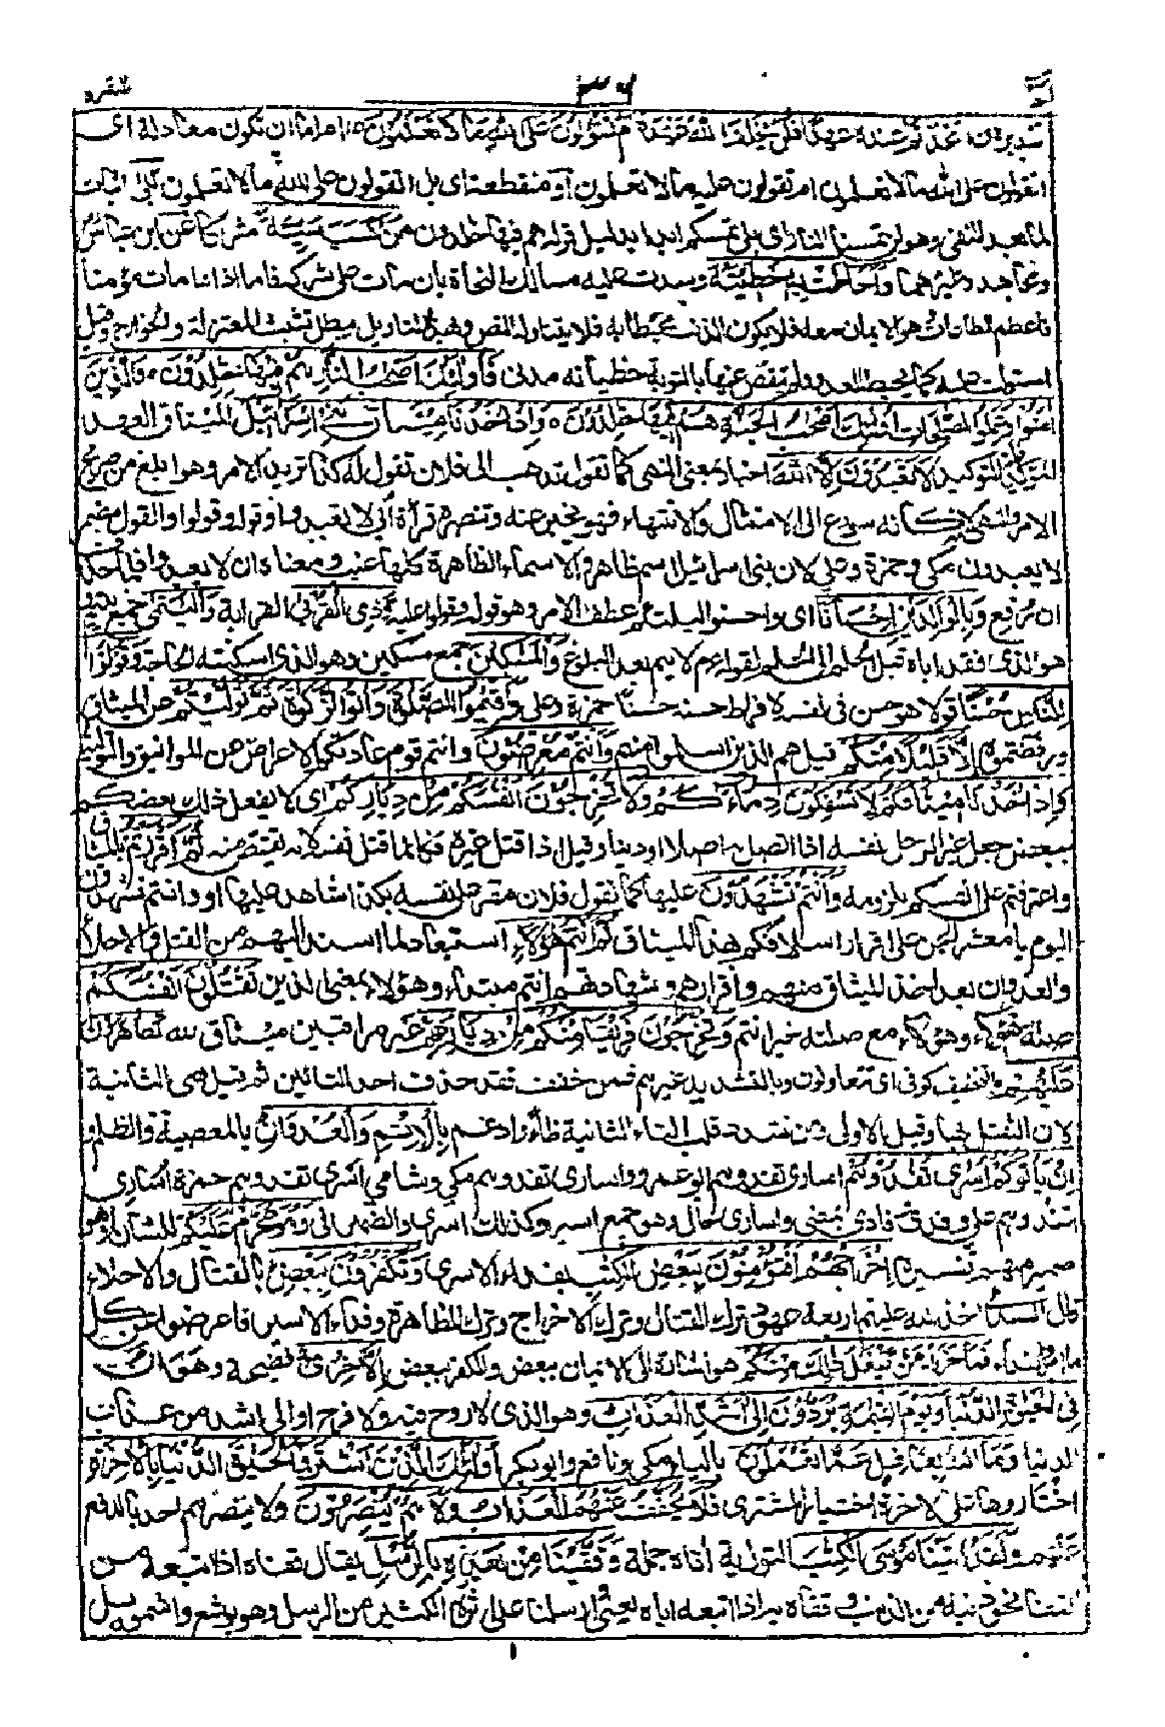 ٣٦
عند الله عهدا فلن يخلف الله عهده ام تقولون على الله ما لا تعلمون ام اما ان تكون معادلة اى
اتقولون على الله ما لا تعلمون ام تقولون عليه ما لا تعلمون او منقطعة اى بل اتقولون على الله ما لا تعلمون بلى اثبات
لما بعد النفى وهو لن تمسنا النار اى بلى تمسكم ابدا بدليل قوله هم فيها خالدون من كسب سيئة شركا عن ابن عباس
ومجاهد وغيرهما واحاطت به خطيئته وسدت عليه مسالك النجاة بان مات على شركه فاما اذا مات مؤمنا
فاعظم الطاعات وهو الايمان معه فلا يكون الذنب محيطا به فلا يتناوله النص وبهذا التاويل يبطل تشبث المعتزلة والخوارج وقيل
استولت عليه كما يحيط العدو ولم يتفص عنها بالتوبة فاولئك اصحب النار هم فيها خلدون والذين
امنوا وعملوا الصلحات اولئك اصحب الجنة هم فيها خلدون واذ اخذنا ميثاق بنى اسرائيل الميثاق العهد
المؤكد غاية التوكيد لا تعبدون الا الله اخبار بمعنى النهى كما تقول تذهب الى فلان تقول له كذا تريد الامر وهو ابلغ من صريح
الامر والنهى لانه كانه سورع الى الامتثال والانتهاء فهو يخبر عنه وتنصره قراءة ابى لا تعبدوا وقوله وقولوا والقول مضمر
لا يعبدون مكى وحمزة وعلى لان بنى اسرائيل اسم ظاهر والاسماء الظاهرة كلها غيب ومعناه ان لا يعبدوا فلما حذف
ان رفع وبالوالدين احسانا اى واحسنوا ليلتئم عطف الامر وهو قوله وقولوا عليه وذى القربى القرابة واليتمى جمع يتيم
هو الذى فقد اباه قبل الحلم الى الحلم لقوله عم لا يتم بعد البلوغ والمسكين جمع مسكين وهو الذى اسكنته الحاجة وقولوا
للناس حسنا قولا هو حسن فى نفسه لافراط حسنه حسنا حمزة وعلى واقيموا الصلوة واتوا الزكوة ثم توليتم عن الميثاق
ورفضتموه الا قليلا منكم قيل هم الذين اسلموا منهم وانتم معرضون وانتم قوم عادتكم الاعراض عن المواثيق والتولية
واذ اخذنا ميثاقكم لا تسفكون دماءكم ولا تخرجون انفسكم من دياركم اى لا يفعل ذلك بعضكم
ببعض جعل غير الرجل نفسه اذا اتصل به اصلا او دينا وقيل اذا قتل غيره فكانما قتل نفسه لانه يقتص منه ثم اقررتم بالميثاق
واعترفتم على انفسكم بلزومه وانتم تشهدون عليها كما تقول فلان مقر على نفسه بكذا شاهد عليها او وانتم تشهدون
اليوم يا معشر اليهود على اقرار اسلافكم بهذا الميثاق ثم انتم هؤلاء استبعاد لما اسند اليهم من القتل والاجلاء
والعدوان بعد اخذ الميثاق منهم واقرارهم وشهادتهم انتم مبتدأ وهؤلاء بمعنى الذين تقتلون انفسكم
صلة هؤلاء وهؤلاء مع صلته خبر انتم وتخرجون فريقا منكم من ديارهم غير مراقبين ميثاق الله تظاهرون
عليهم بالتخفيف كوفى اى تتعاونون وبالتشديد غيرهم فمن خفف فقد حذف احد التائين ثم قيل هى الثانية
لان الثقل بها وقيل الاولى ومن شدد قلب التاء الثانية ظاء وادغم بالاثم والعدوان بالمعصية والظلم
وان ياتوكم اسرى تفدوهم اسارى تفدوهم ابو عمرو واسارى تفدوهم مكى وشامى اسرى تفدوهم حمزة اسارى
تفدوهم على وفدى فادى بمعنى واسارى حال وهو جمع اسير وكذلك اسرى والضمير فى وهو محرم عليكم للشان او هو
ضمير مبهم تفسيره اخراجهم افتؤمنون ببعض الكتب بفداء الاسرى وتكفرون ببعض بالقتال والاجلاء
قال السدى اخذ الله عليهم اربعة عهود ترك القتال وترك الاخراج وترك المظاهرة وفداء الاسير فاعرضوا عن كل
ما امروا به الا الفداء فما جزاء من يفعل ذلك منكم هو اشارة الى الايمان ببعض والكفر ببعض الا خزى فضيحة وهوان
فى الحيوة الدنيا ويوم القيمة يردون الى اشد العذاب وهو الذى لا روح فيه ولا فرح او الى اشد من عذاب
الدنيا وما الله بغافل عما تعملون بالياء مكى ونافع وابو بكر اولئك الذين اشتروا الحيوة الدنيا بالاخرة
اختاروها على الاخرة اختيار المشترى فلا يخفف عنهم العذاب ولا هم ينصرون ولا ينصرهم احد بالدفع
عنهم ولقد اتينا موسى الكتب التورية اتاه جملة وقفينا من بعده بالرسل يقال قفاه اذا اتبعه من
القفا نحو ذنبه من الذنب وقفاه به اذا اتبعه اياه يعنى ارسلنا على اثره الكثير من الرسل وهو يوشع واشمويل